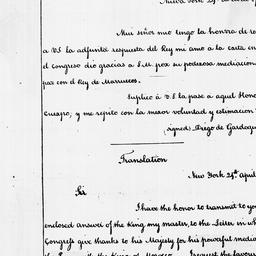 Mui señor mio tengo la honra de re
a V.S la adjunta respuesta del Rey mi amo a la carta en
el Congreso dio gracias a S.M. por su poderosa mediacion
paz con el Rey de Marruecos.
Suplico à V.S la pase a aquel Hono
Cuerpo, y me repito con la maior voluntad y estimacion
(signed) Diego de Gardoqu
Translation
New York 29th apul
Sir
I have the honor to transmit to yo
enclosed answer of the King my master, to the Letter in wh
Congress give thanks to his Majesty for his powerful media